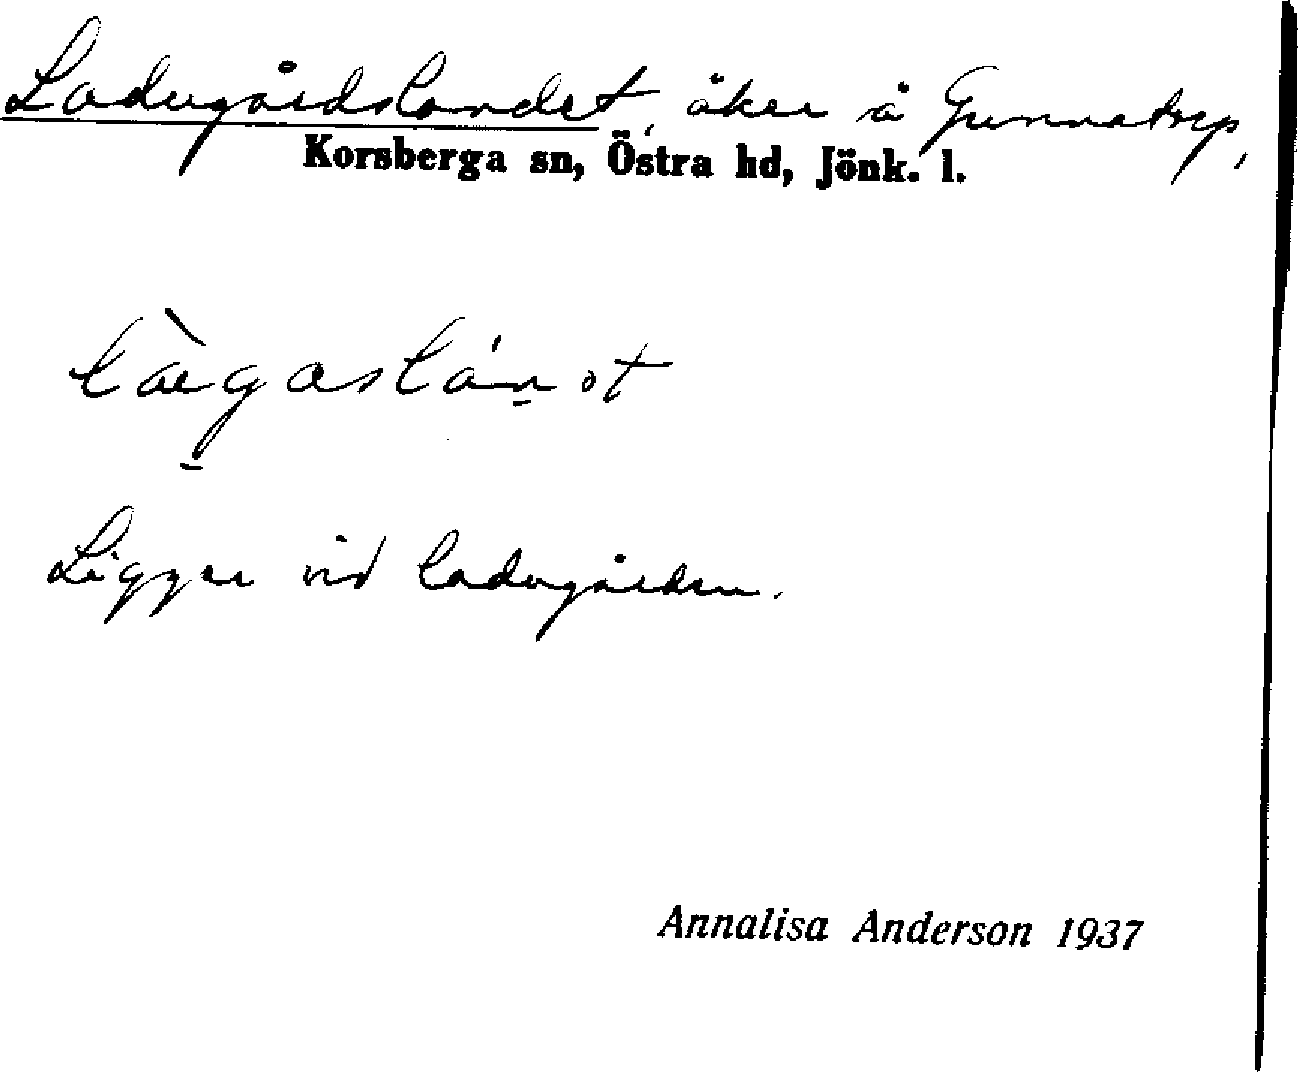 Ladugårdslandet, åker å Gunnatorp,
Korsberga sn, Östra hd, Jönk. l.
Ligger vid ladugården.
Annalisa Anderson 1937